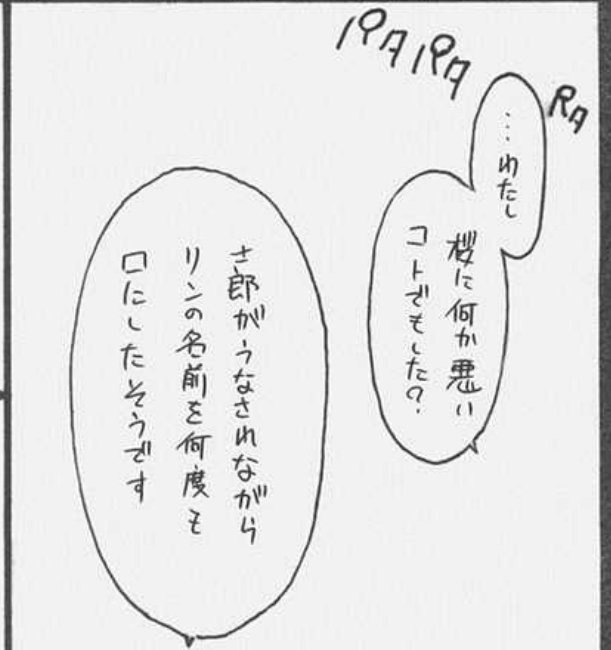 パタパタ
パタ
…わたし
桜に何か悪い
コトでもした?
士郎がうなされながら
リンの名前を何度も
口にしたそうです